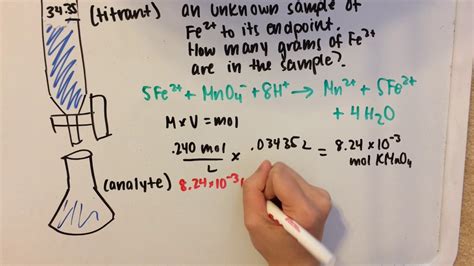 34.35
(titrant)
an unknown sample of
Fe²⁺ to its endpoint.
How many grams of Fe²⁺
are in the sample?
5Fe²⁺ + MnO₄⁻ + 8H⁺ → Mn²⁺ + 5Fe³⁺
+ 4H₂O
M × V = mol
.240 mol / L × .03435 L = 8.24 × 10⁻³
mol KMnO₄
(analyte) 8.24 × 10⁻³